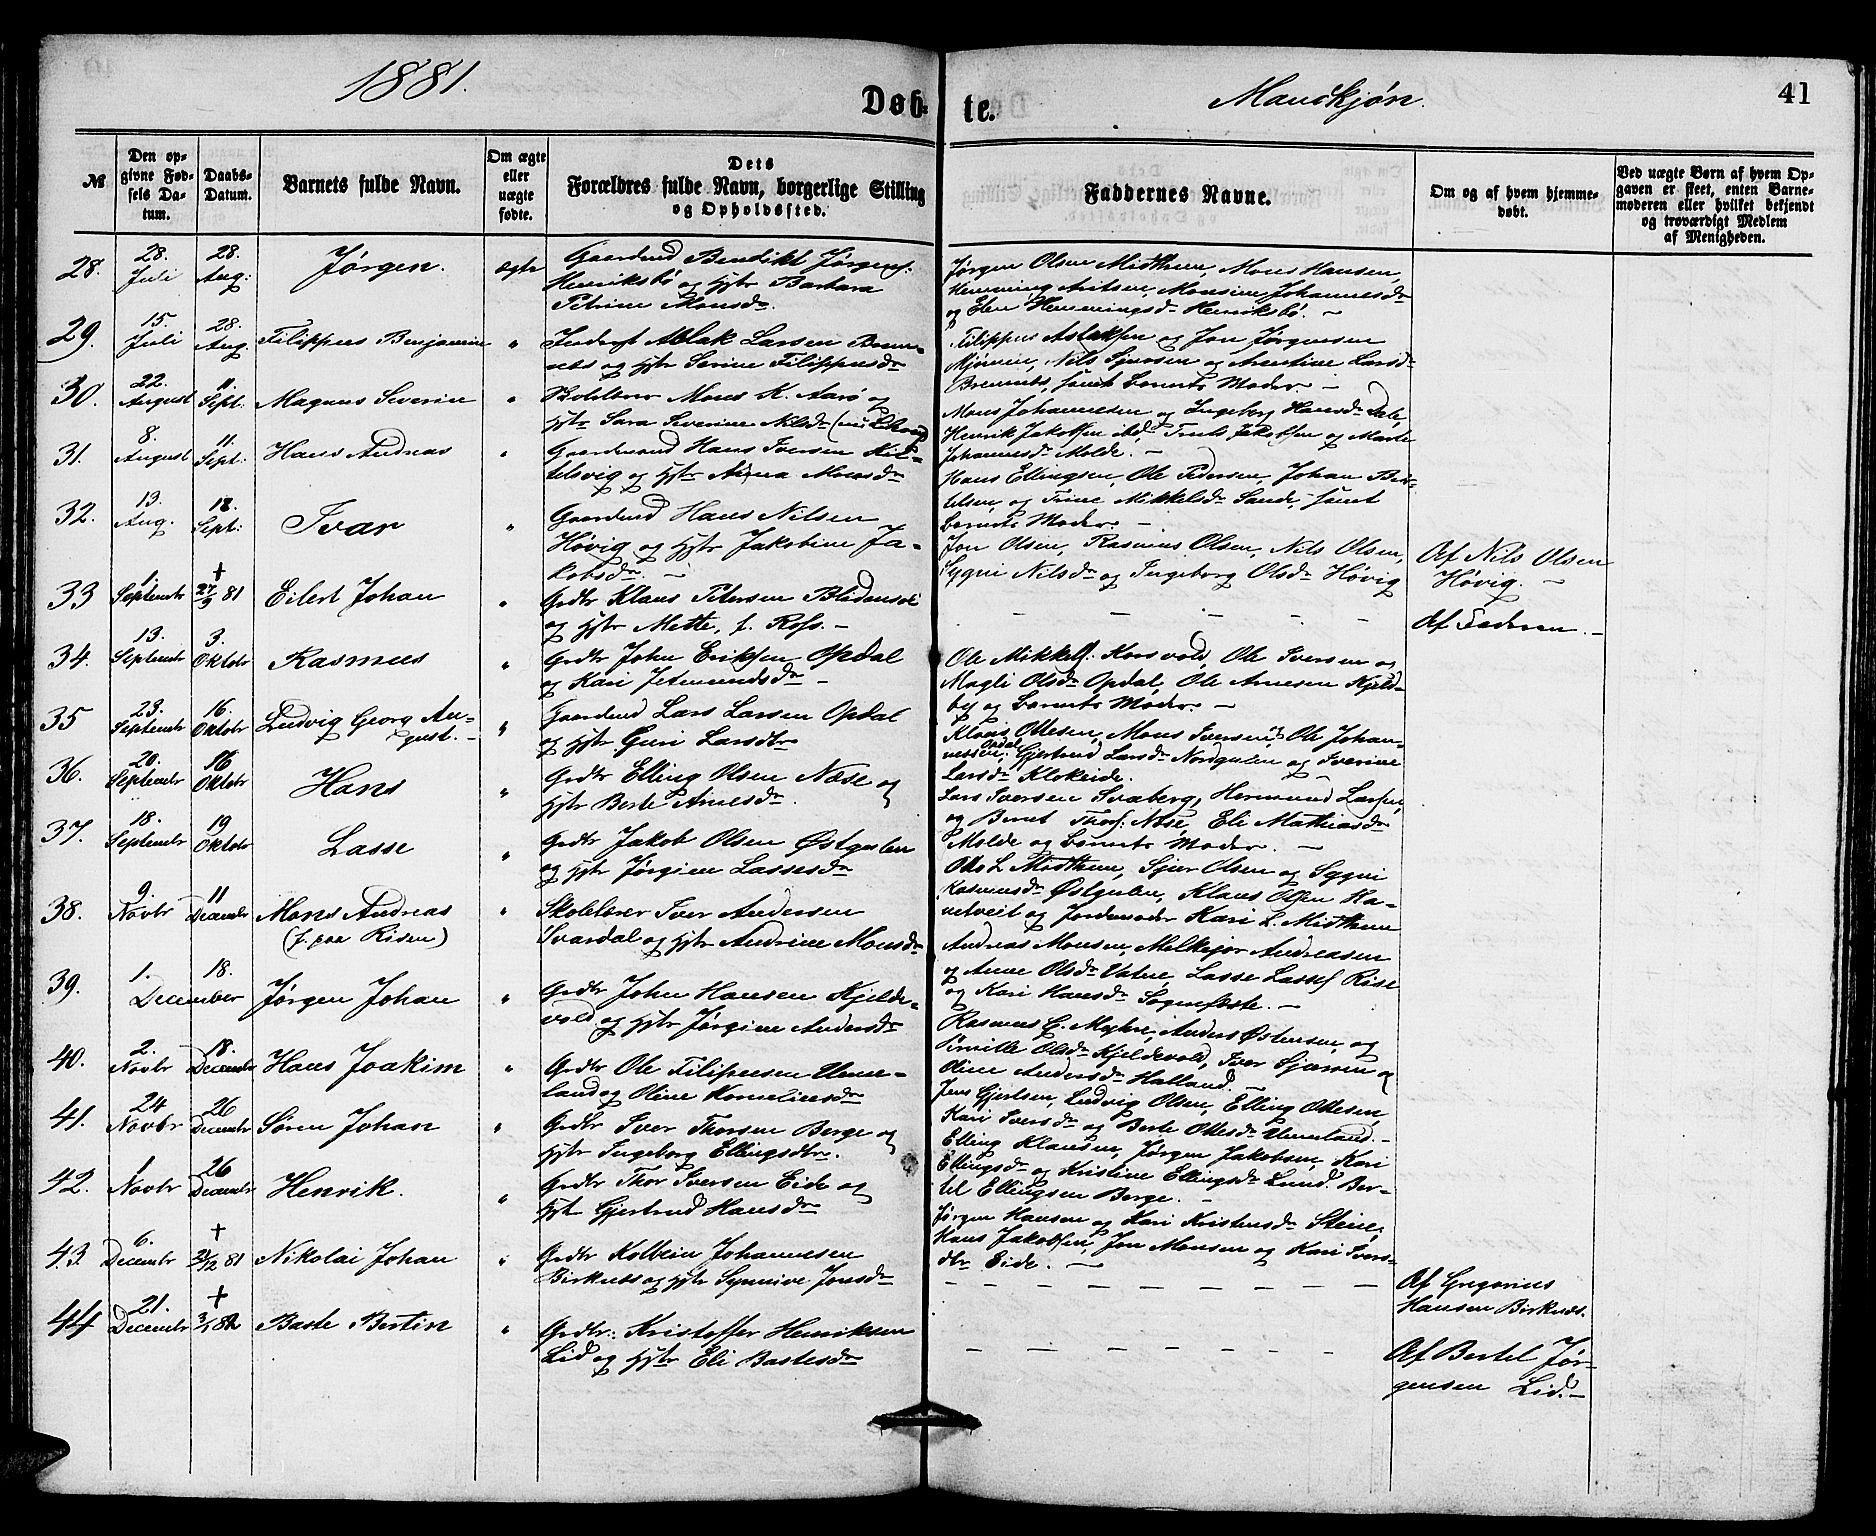 1881.
Døb-
te.
Mandkjøn.
41
№
Den op-
givne Fød-
sels Da-
tum.
Daabs-
Datum.
Barnets fulde Navn.
Om ægte
eller
uægte
fødte.
Dets
Forældres fulde Navn, borgerlige Stilling
og Opholdssted.
Faddernes Navne.
Om og af hvem hjemme-
døbt.
Ved uægte Børn af hvem Op-
gaven er skeet, enten Barne-
moderen eller hvilket bekjendt
og troværdigt Medlem
af Menigheden.
28.
28.
Juli
28.
Aug:
Jørgen.
ægte
Gaardmd Bendikt Jørgens:
Henriksbø og hstr Barbara
Petrine Monsdr.
Jørgen Olsen Midthun, Mons Hansen,
Henning Antsen, Monsine Johannesdr
og Elen Henningsdr Henriksbø. –
29.
15.
Juli
28.
Aug.
Filippus Benjamin
"
Inderst Aslak Larsen Brem-
nes og hstr Serine Filippusdr
Filippus Aslaksen og Jon Jørgensen
Mjøvein, Nils Sjursen og Anstine Larsd-
Bremnes, samt Barnets Moder. –
30.
22.
August
11.
Sept:
Magnus Severin
"
Skolelærer Mons K. Aarø og
hstr Sara Severine Nilsdr
Mons Johannesen og Ingeborg Hansdr Sale,
Henrik Jakobsen ibd, Truls Jakobsen og Marte
Johannesdr Molde. –
31.
8.
August
11.
Sept:
Hans Andreas
"
Gaardmand Hans Iversen Kil-
telsvig og hstr Anna Monsdr
Hans Ellingsen, Ole Pedersen, Johan Ber-
telsen, og Trine Mikkelsdr Sande, samt
Barnets Moder. –
32.
13.
Aug.
18.
Sept:
Ivar
"
Gaardmd Hans Nilsen
Høvig og hstr Jakobine Ja-
kobsdr. –
Jon Olsen, Rasmus Olsen, Nils Olsen,
Sygni Nilsdr og Ingeborg Olsdr Høvig
Af Nils Olsen
Høvig. –
33
1.
Septembr
†
27/9 81
Eilert Johan
"
Grdbr Klaus Petersen Blidensol
og hstr Mette, f. Ross. –
– – – – –
Af Faderen. –
34.
13.
Septembr
3.
Oktobr
Rasmus
"
Grdbr John Eriksen Opdal
og Kari Jetmundsdr –
Ole Mikkels. Korsvold, Ole Iversen og
Magli Olsdr Opdal, Ole Arnesen Kjelds-
bø og Barnets Moder. –
35
23.
Septembr
16.
Oktobr
Ludvig Georg Au-
gust. –
"
Gaardmd Lars Larsen Opdal
og hstr Guri Larsdtr
Klaus Ottesen, Mons Iversen, Ole Johan-
nessen Opdal, Gjertrud Larsdr Nordgulen og Iverine
Larsdr Klokeide.
36.
20.
Septembr
16
Oktobr
Hans
"
Grdbr Elling Olsen Næse og
hstr Berte Arnesdr.
Lars Iversen Svaberg, Hermund Larsen,
og Bernt Thors. Næse, Eli Mathiasdr
Molde og Barnets Moder. –
37.
18.
Septembr
19
Oktobr
Lasse
"
Grdbr Jakob Olsen Østgulen
og hstr Jørgine Lassesdr
Otto L. Midthun, Sjur Olsen og Sygni
Rasmusdr Østgulen, Klaus Olsen Ha-
vetveit og Jordemoder Kari L. Midthun
38.
9.
Novbr
11
Decembr
Mons Andreas
(f. paa Risen)
"
Skolelærer Iver Andersen
Svardal og hstr Andrine Monsdr
Andreas Monsen, Melkejor Andreasen
og Anne Olsdr Vatne, Lasse Lasses Rise
og Kari Hansdr Sognefæste. –
39.
1.
18.
December
Jørgen Johan
"
Grdbr John Hansen Kjelde-
vold og hstr Jørgine Andersdr
Rasmus E. Myhre, Anders Østensen, og
Pernille Olsdr Kjeldevold, Iver Sjursen og
Oline Andersdr Halland. –
40.
2.
Novbr
18.
Decembr
Hans Joakim
"
Grdbr Ole Filipusen Umme-
land og Oline Korneliusdr
Jens Gjertsen, Ludvig Olsen, Elling Ottesen,
Kari Iversdr og Berte Ottesdr Ummeland. –
41.
24
Novbr
26
Decembr
Søren Johan
"
Grdbr Iver Thorsen Berge og
hstr Ingeborg Ellingsdtr.
Elling Klausen, Jørgen Jakobsen, Kari
Ellingsdr og Kristine Ellingsdr Lund, Ber-
tel Ellingsen Berge. –
42.
1
Novbr
26
Decembr
Henrik.
"
Grdbr Thor Iversen Eide og
hstr Gjertrud Hansdr
Jørgen Hansen og Kari Kristensdr Steine,
Hans Jakobsen, Jon Monsen og Kari Ivers-
dtr Eide. –
43.
6.
Decembr
†
21/12 81
Nikolai Johan
"
Grdbr Kolbein Johannesen
Birknes og hstr Synnive Jonsdr
– – – – – – – –
Af Gregorius
Hansen Birknes.
44
21.
Decembr
†
3/1 82
Baste Bertin
"
Grdbr: Kristoffer Henriksen
Lid og hstr Eli Bastesdr
– – – – – – – –
Af Bertel Jør-
gensen Lid. –